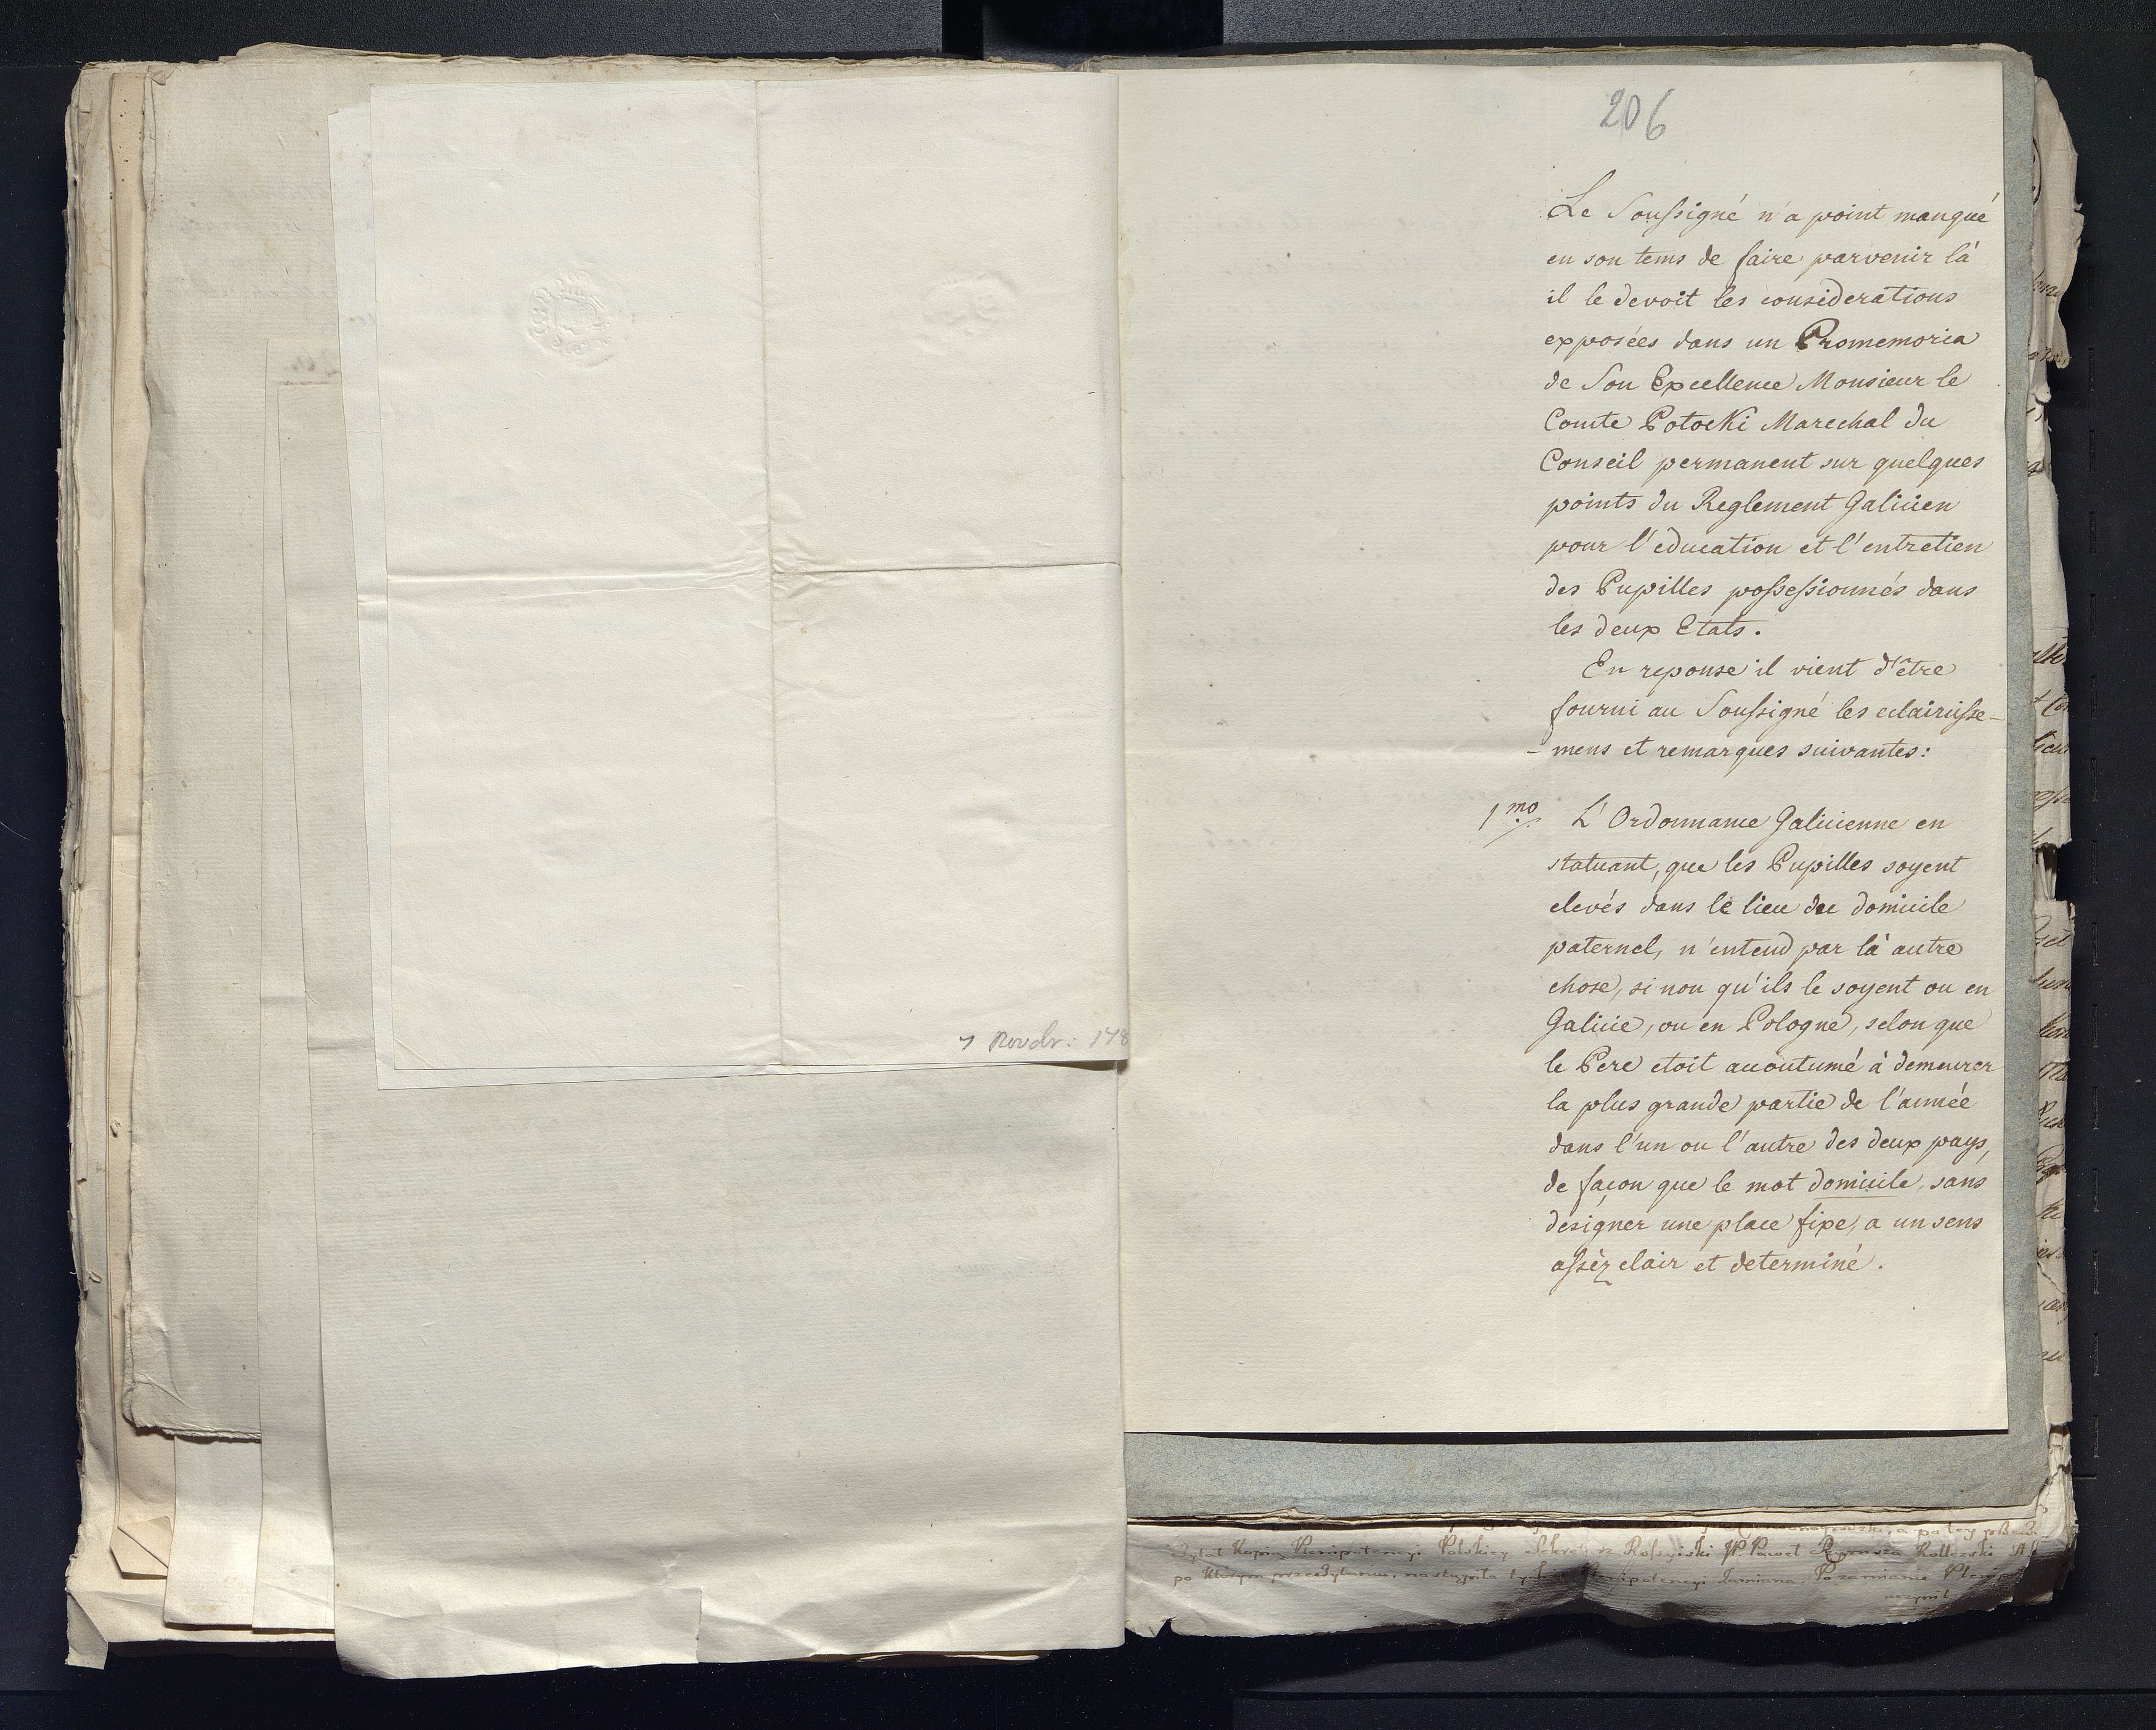 7 Novbr: 178
206
Le Soussigné n'a point manqué
en son tems de faire parvenir là
il le devoit les considerations
exposées dans un Promemoria
de Son Excellence Monsieur le
Comte Potocki Marechal du
Conseil permanent sur quelques
points du Reglement Galicien
pour l'education et l'entretien
des Pupilles possessionnés dans
les deux Etats.
En reponse il vient d'être
fourni au Soussigné les eclaircisse-
-mens et remarques suivantes:
1mo L'Ordonnance Galicienne en
statuant, que les Pupilles soyent
elevés dans le lieu du domicile
paternel, n'entend par là autre
chose, si non qu'ils le soyent ou en
Galicie, ou en Pologne, selon que
le Pere etoit accoutumé à demeurer
la plus grande partie de l'année
dans l'un ou l'autre des deux pays,
de façon que le mot domicile, sans
designer une place fixe, a un sens
assèz clair et determiné.